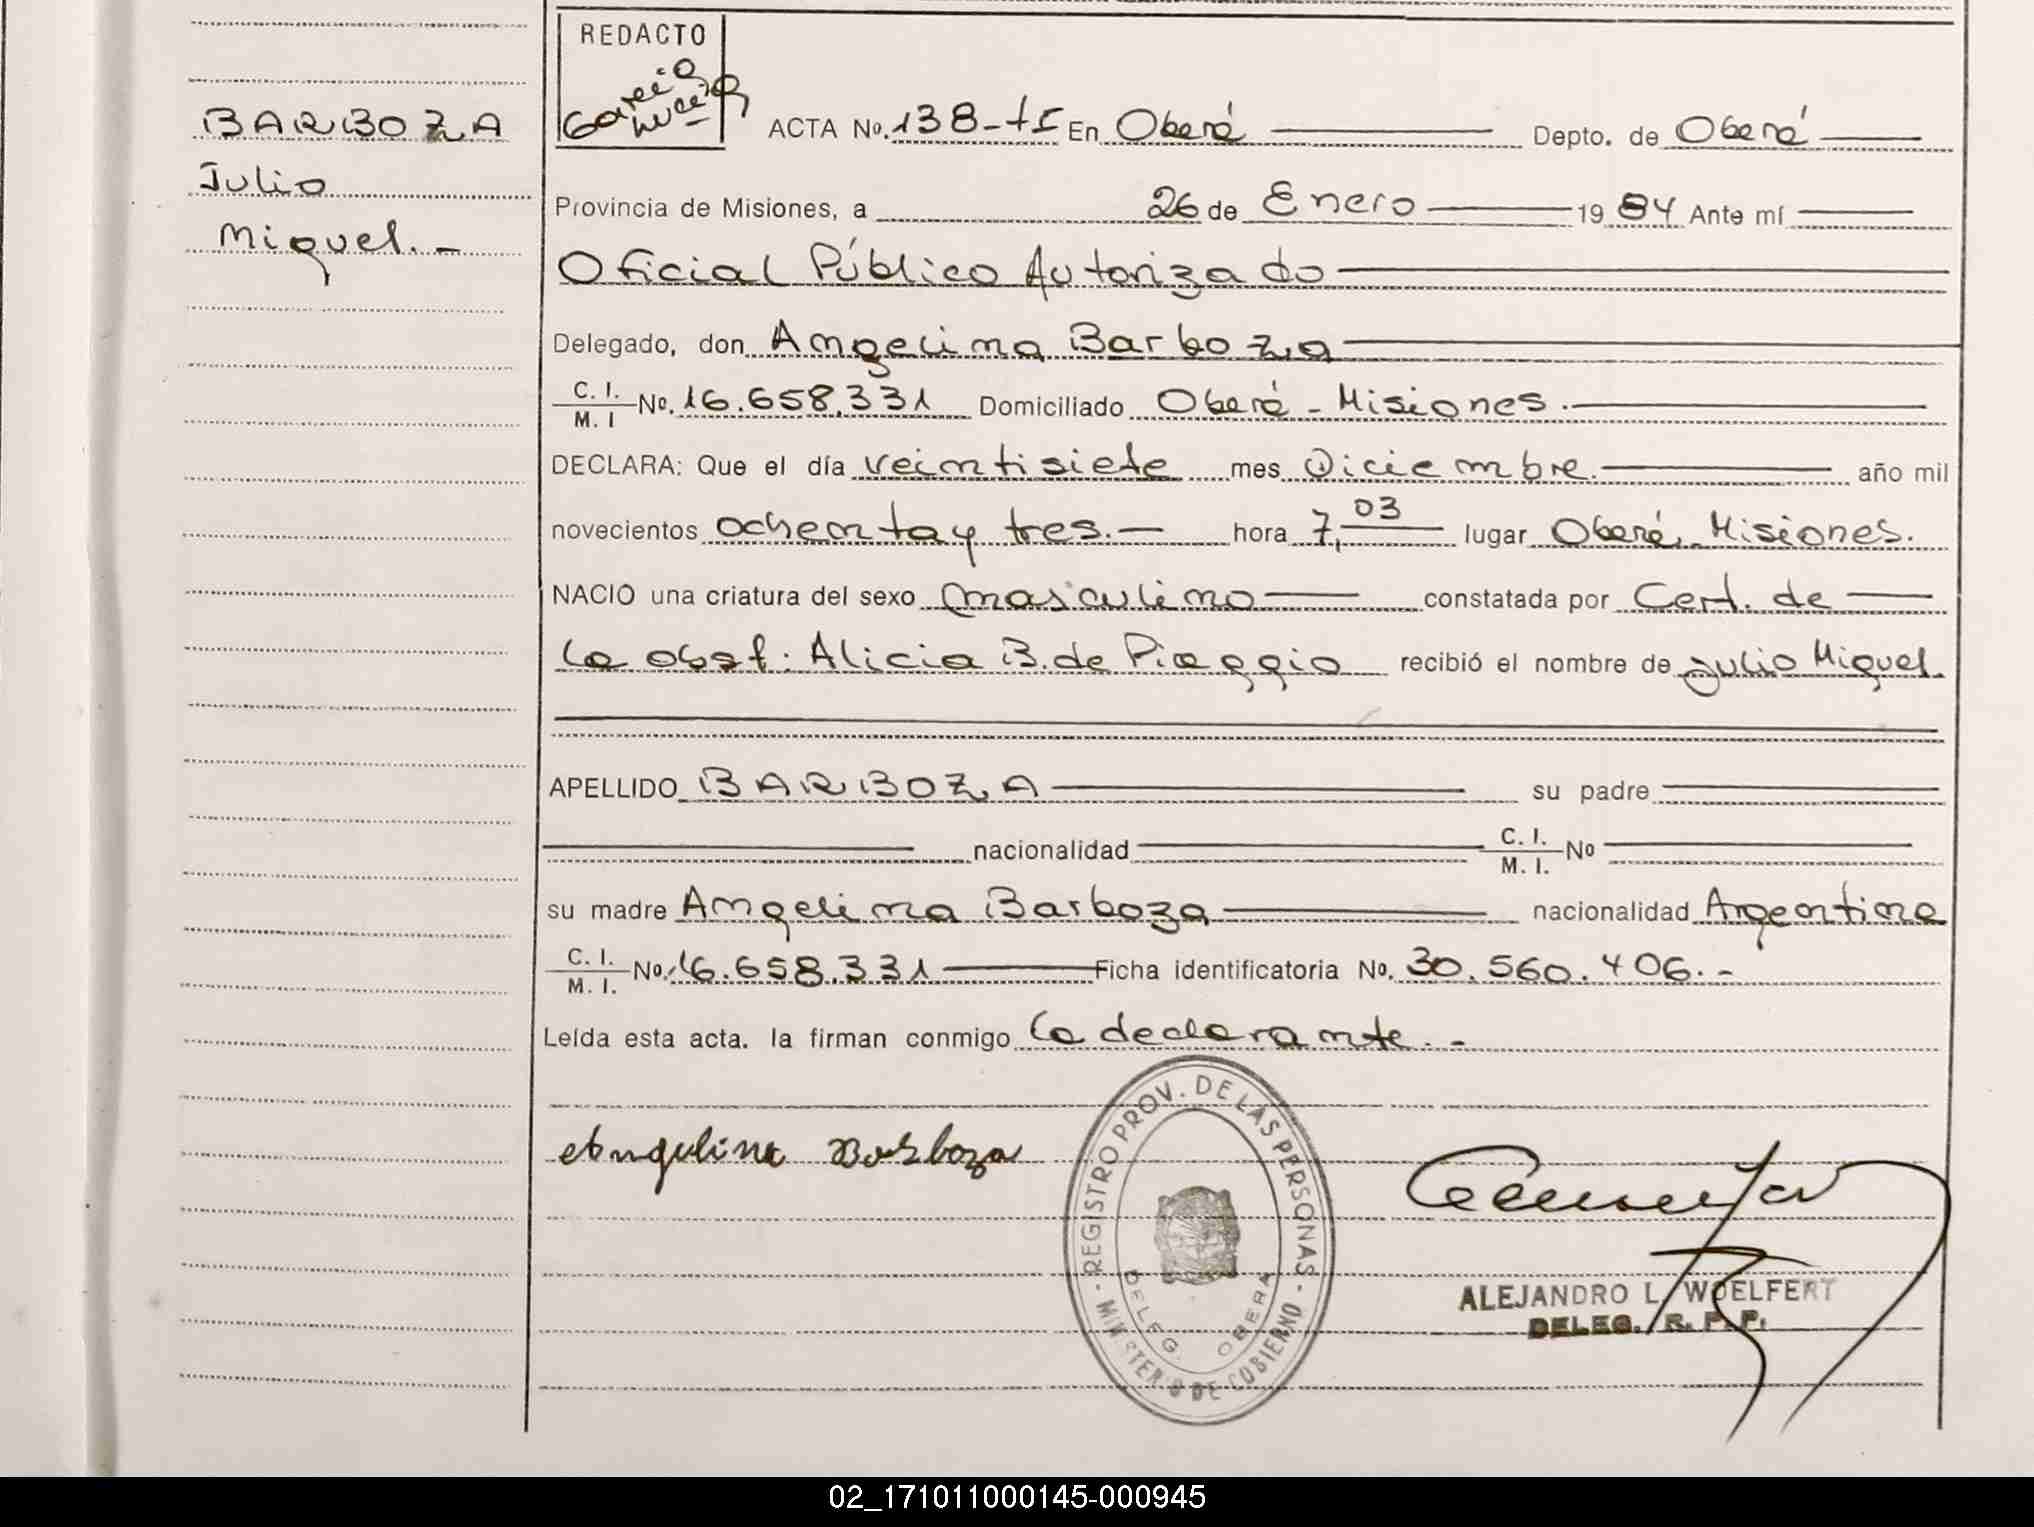 BARBOZA
Julio
Miguel.-
REDACTO
García
ACTA No. 138-tI En Oberá Depto. de Oberá
Provincia de Misiones, a 26 de Enero 1984 Ante mí
Oficial Público Autorizado
Delegado, don Angelina Barboza
C. I. / M. I No. 16.658.331 Domiciliado Oberá - Misiones.
DECLARA: Que el día veintisiete mes Diciembre. año mil
novecientos ochenta y tres.- hora 7,03 lugar Oberá, Misiones.
NACIO una criatura del sexo masculino constatada por Cert. de
la obst. Alicia B. de Piaggio recibió el nombre de Julio Miguel.
APELLIDO BARBOZA su padre
nacionalidad C. I. / M. I. No
su madre Angelina Barboza nacionalidad Argentina
C. I. / M. I. No. 16.658.331 Ficha identificatoria No. 30.560.406.-
Leída esta acta. la firman conmigo la declarante.-
Angelina Barboza
REGISTRO PROV. DE LAS PERSONAS - MINISTERIO DE GOBIERNO -
DELEG. OBERA
ALEJANDRO L. WOELFERT
DELEG. R. P. P.
02_171011000145-000945